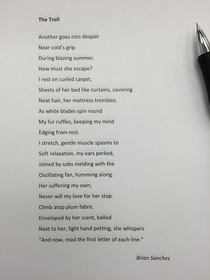 The Troll
Another goes into despair
Near cold's grip
During blazing summer.
How must she escape?
I rest on curled carpet,
Sheets of her bed like curtains, covering
Neat hair, her mattress trembles.
As white blades spin round
My fur ruffles, keeping my mind
Edging from rest.
I stretch, gentle muscle spasms to
Soft relaxation, my ears perked,
Joined by sobs melding with the
Oscillating fan, humming along.
Her suffering my own;
Never will my love for her stop.
Climb atop plum fabric
Enveloped by her scent, balled
Next to her, light hand petting, she whispers
"And now, read the first letter of each line."
Brian Sanchez